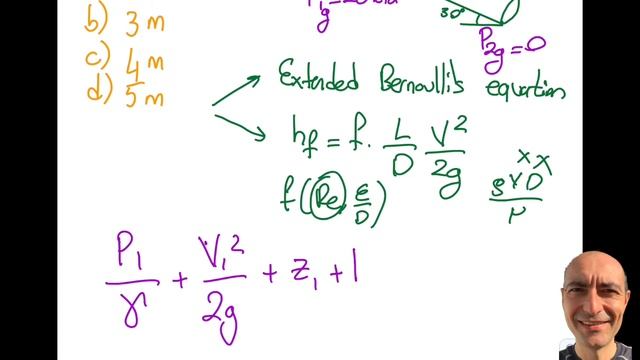 b) 3 m
c) 4 m
d) 5 m
30°
P2g = 0
Extended Bernoulli's equation
hf = f · L/D V²/2g
f(Re, ε/D)
ρVD/μ
P1/γ + V1²/2g + z1 + l